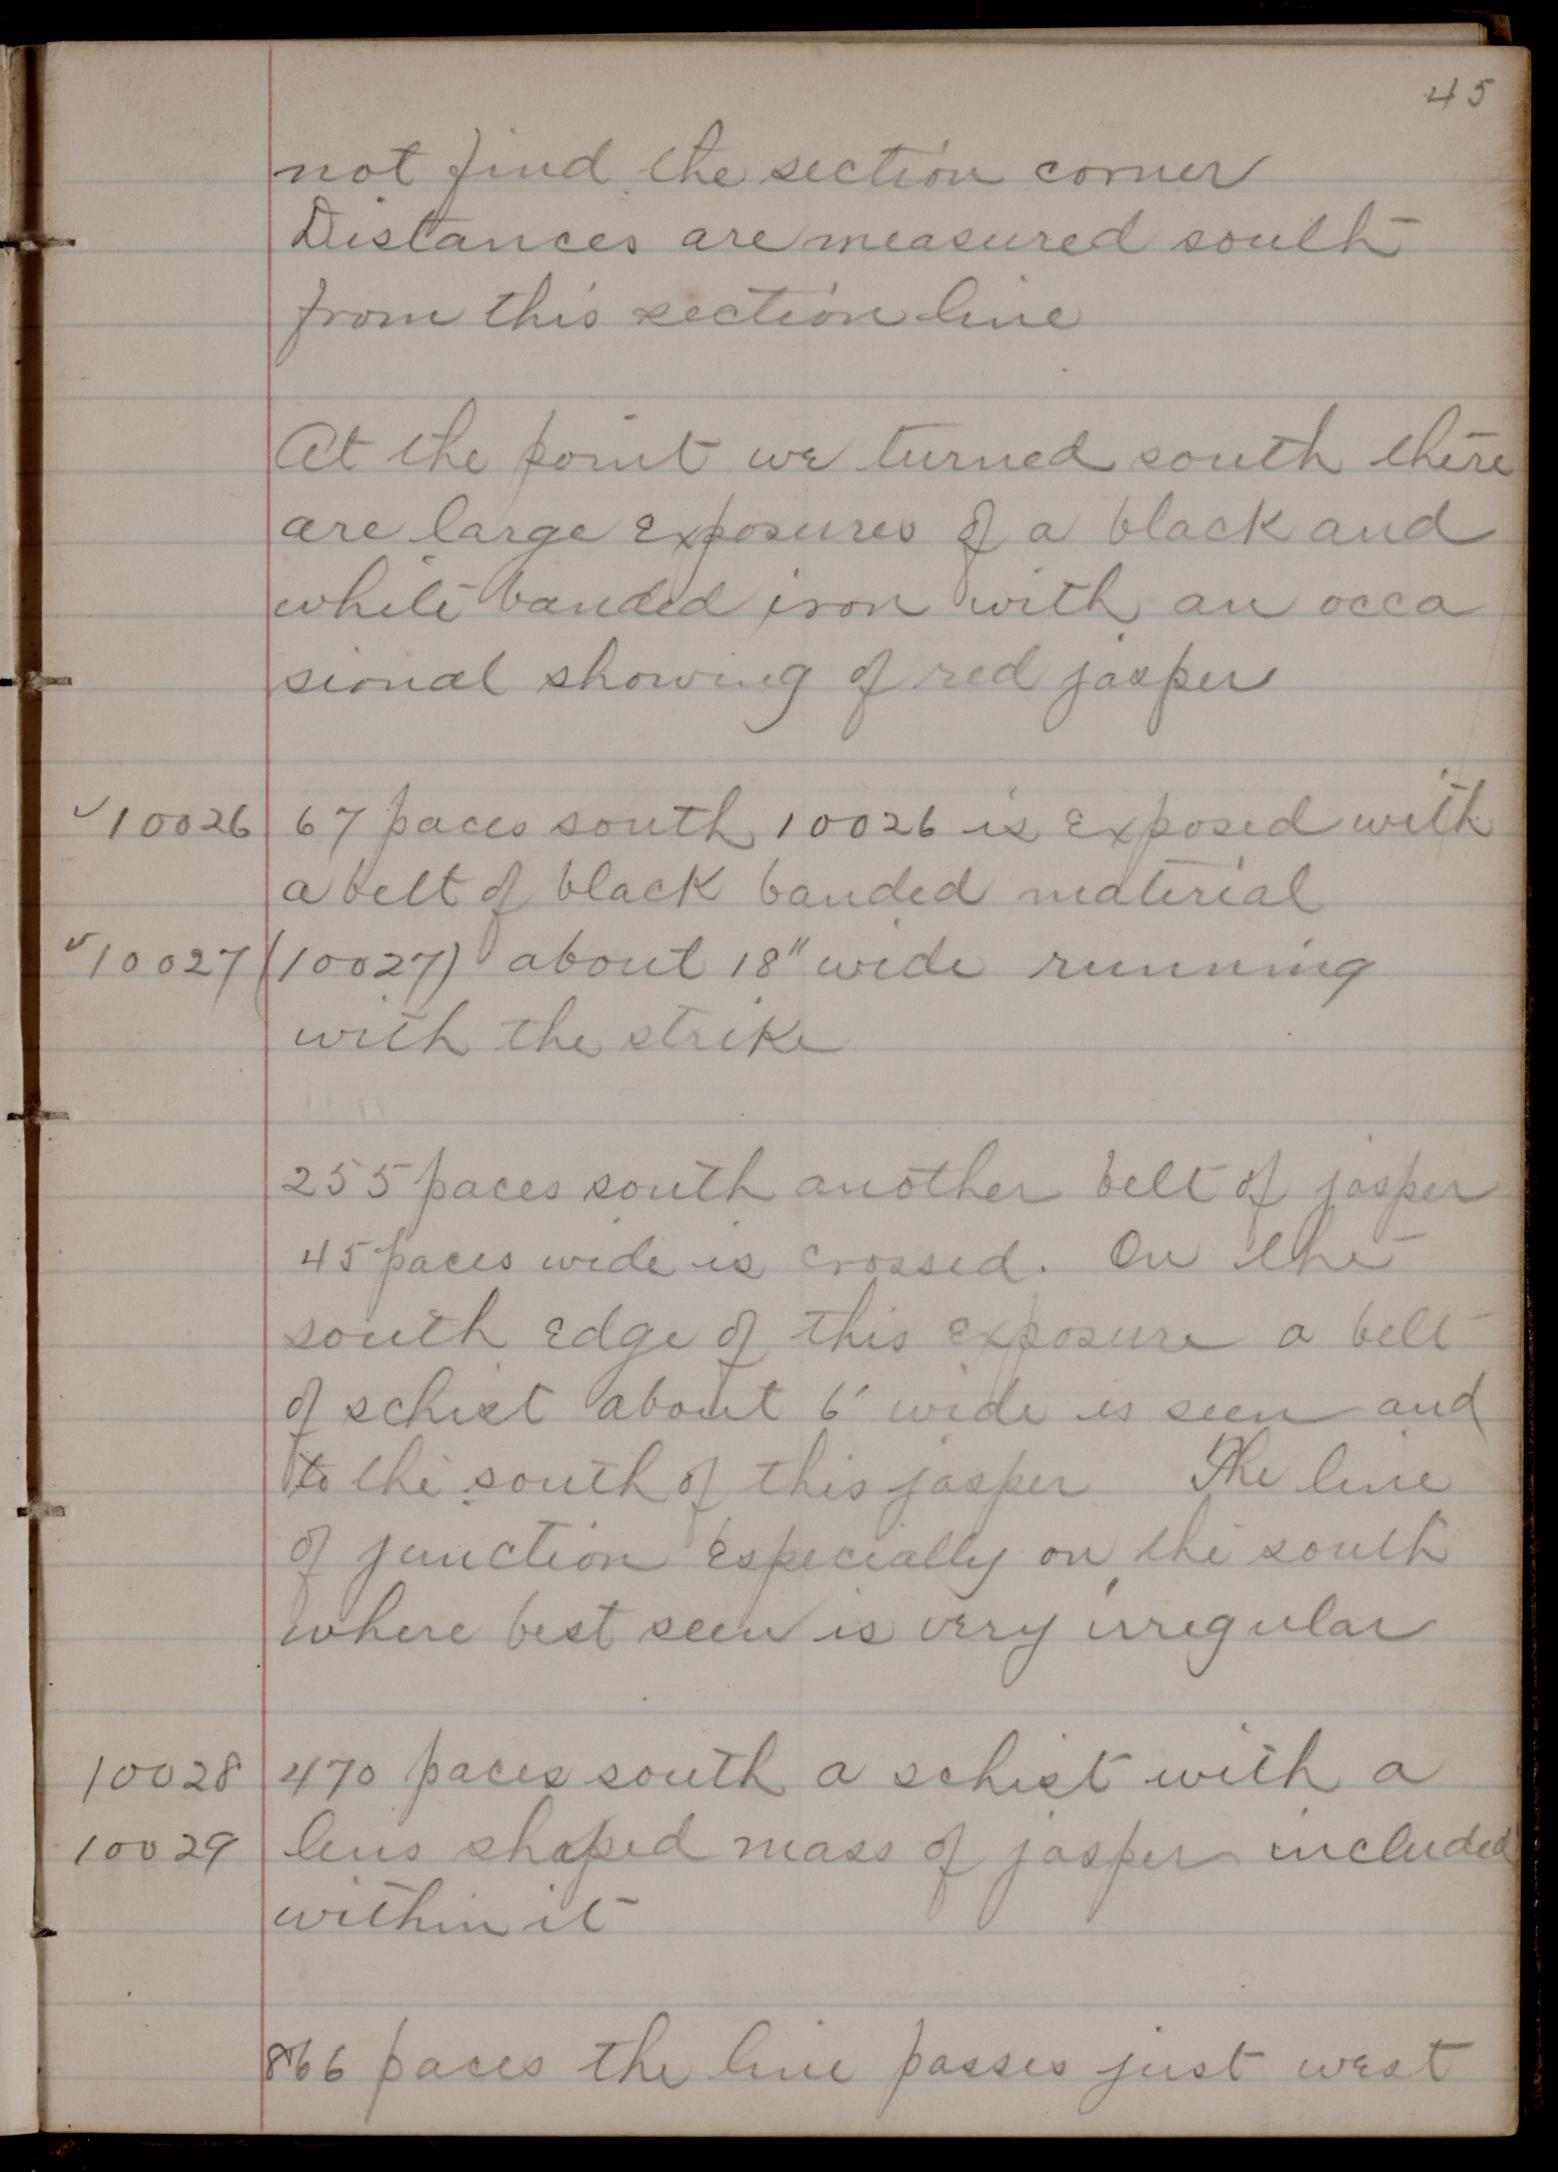 45
not find the section corner
Distances are measured south
from this section line
At the point we turned south there
are large exposures of a black and
white banded iron with an occa
sional showing of red jasper
✓10026 67 paces south 10026 is exposed with
a belt of black banded material
✓10027 (10027) about 18" wide running
with the strike
255 paces south another belt of jasper
45 paces wide is crossed. On the
south edge of this exposure a belt
of schist about 6' wide is seen and
to the south of this jasper The line
of junction especially on the south
where best seen is very irregular
10028 470 paces south a schist with a
10029 lens shaped mass of jasper included
within it
866 paces the line passes just west